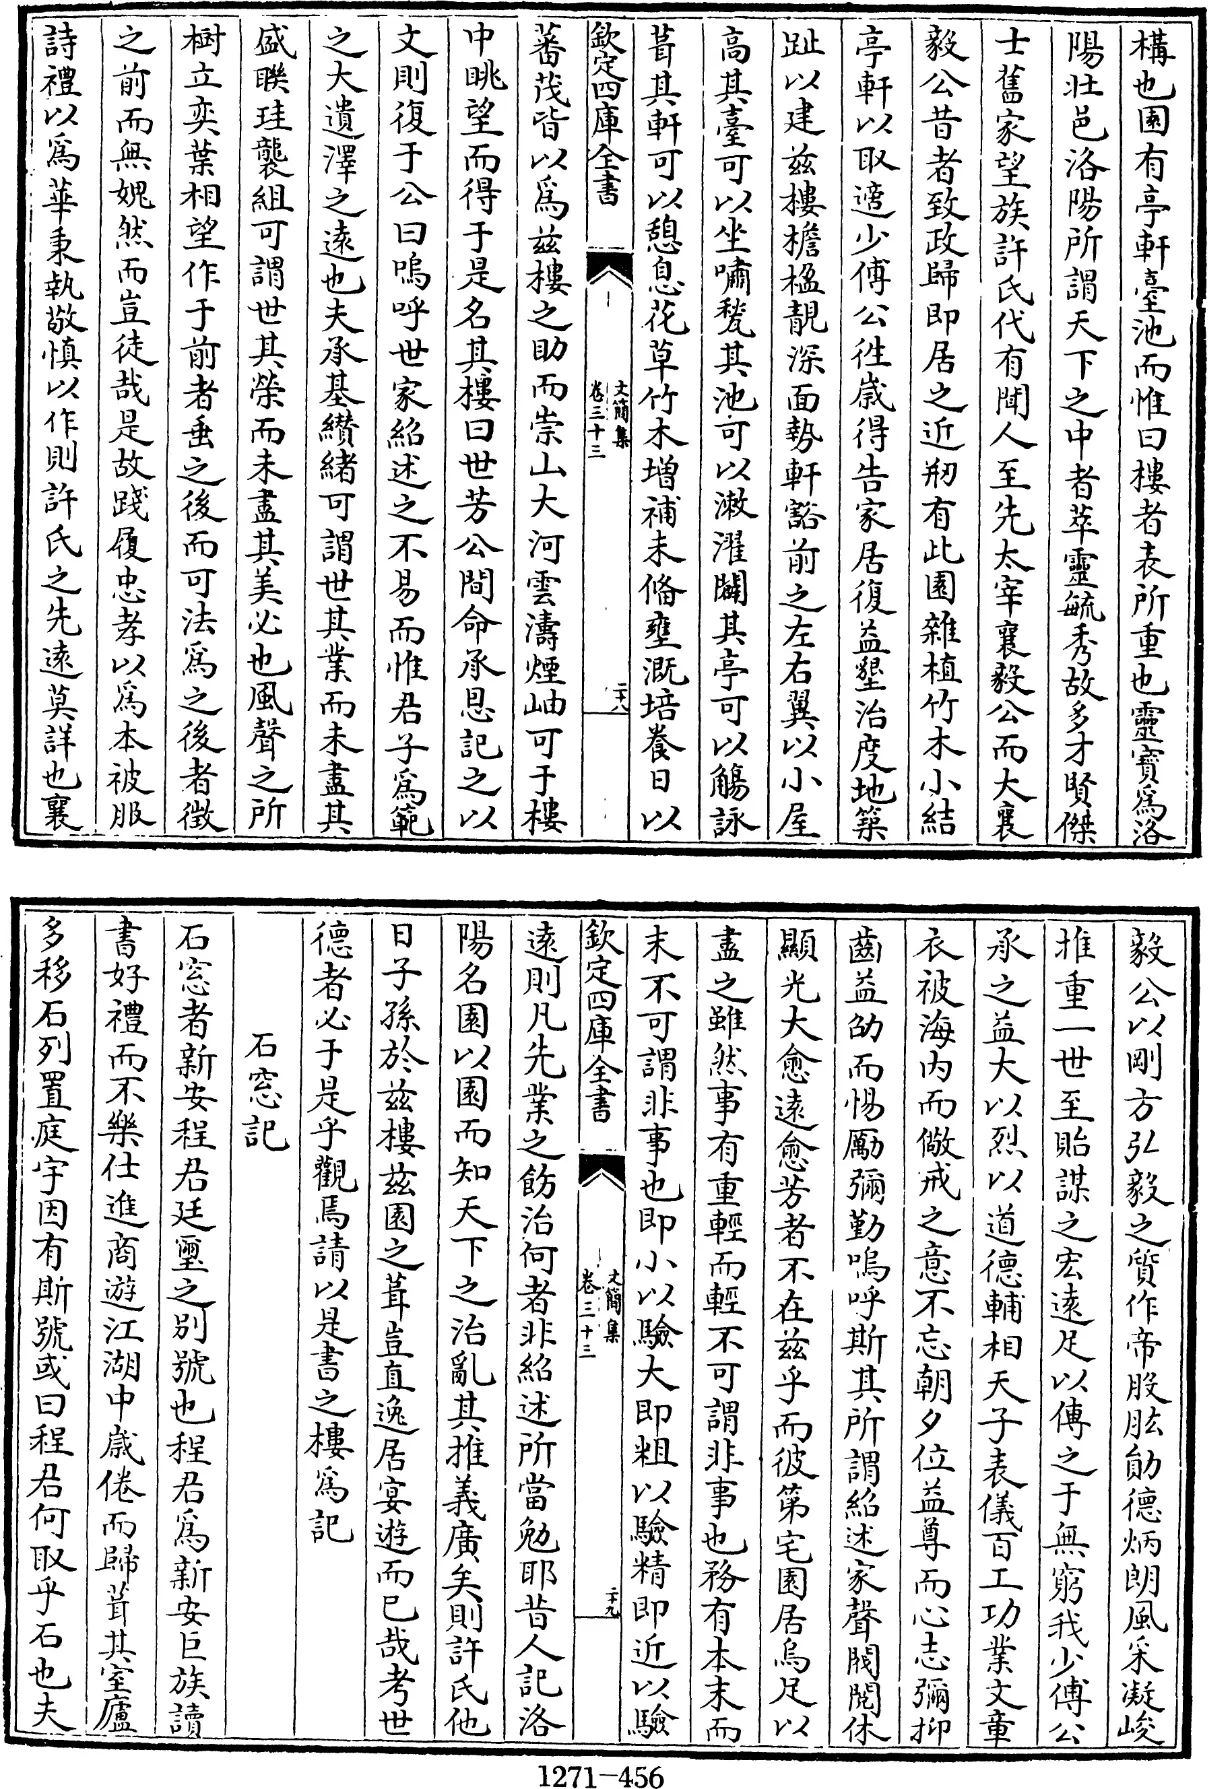 構也園有亭軒臺池而惟曰樓者表所重也靈寳爲洛
陽壯邑洛陽所謂天下之中者萃靈毓秀故多才賢傑
士舊家望族許氏代有聞人至先太宰襄毅公而大襄
毅公昔者致政歸即居之近剏有此園雜植竹木小結
亭軒以取適少傅公徃嵗得告家居復益墾治度地築
趾以建兹樓檐楹靚深面勢軒豁前之左右翼以小屋
高其臺可以坐嘯甃其池可以漱濯闢其亭可以觴詠
葺其軒可以憩息花草竹木增補未偹壅溉培養日以
欽定四庫全書
文簡集
卷三十三
二十八
蕃茂皆以爲兹樓之助而崇山大河雲濤煙岫可于樓
中眺望而得于是名其樓曰世芳公間命承恩記之以
文則復于公曰嗚呼世家紹述之不易而惟君子爲範
之大遺澤之遠也夫承基纉緒可謂世其業而未盡其
盛聨珪襲組可謂世其榮而未盡其美必也風聲之所
樹立奕葉相望作于前者垂之後而可法爲之後者徴
之前而無媿然而豈徒哉是故踐履忠孝以爲本被服
詩禮以爲華秉執敬慎以作則許氏之先遠莫詳也襄
毅公以剛方弘毅之質作帝股肱勛德炳朗風采凝峻
推重一世至貽謀之宏遠足以傳之于無窮我少傅公
承之益大以烈以道德輔相天子表儀百工功業文章
衣被海内而儆戒之意不忘朝夕位益尊而心志彌抑
齒益劭而惕厲彌勤嗚呼斯其所謂紹述家聲閥閲休
顯光大愈遠愈芳者不在兹乎而彼第宅園居烏足以
盡之雖然事有重輕而輕不可謂非事也務有本末而
末不可謂非事也即小以驗大即粗以驗精即近以驗
欽定四庫全書
文簡集
卷三十三
二十九
遠則凡先業之飭治何者非紹述所當勉耶昔人記洛
陽名園以園而知天下之治亂其推義廣矣則許氏他
日子孫於兹樓兹園之葺豈直逸居宴遊而已哉考世
德者必于是乎觀焉請以是書之樓爲記
石窓記
石窓者新安程君廷璽之别號也程君爲新安巨族讀
書好禮而不樂仕進商遊江湖中嵗倦而歸葺其室廬
多移石列置庭宇因有斯號或曰程君何取乎石也夫
1271-456